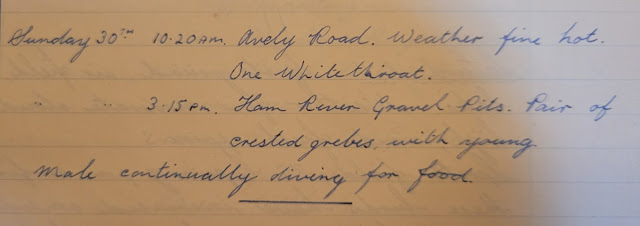 Sunday 30TH 10.20 AM. Avely Road. Weather fine hot.
One Whitethroat.
" " 3.15 pm. Ham River Gravel Pits. Pair of
crested grebes, with young
Male continually diving for food.